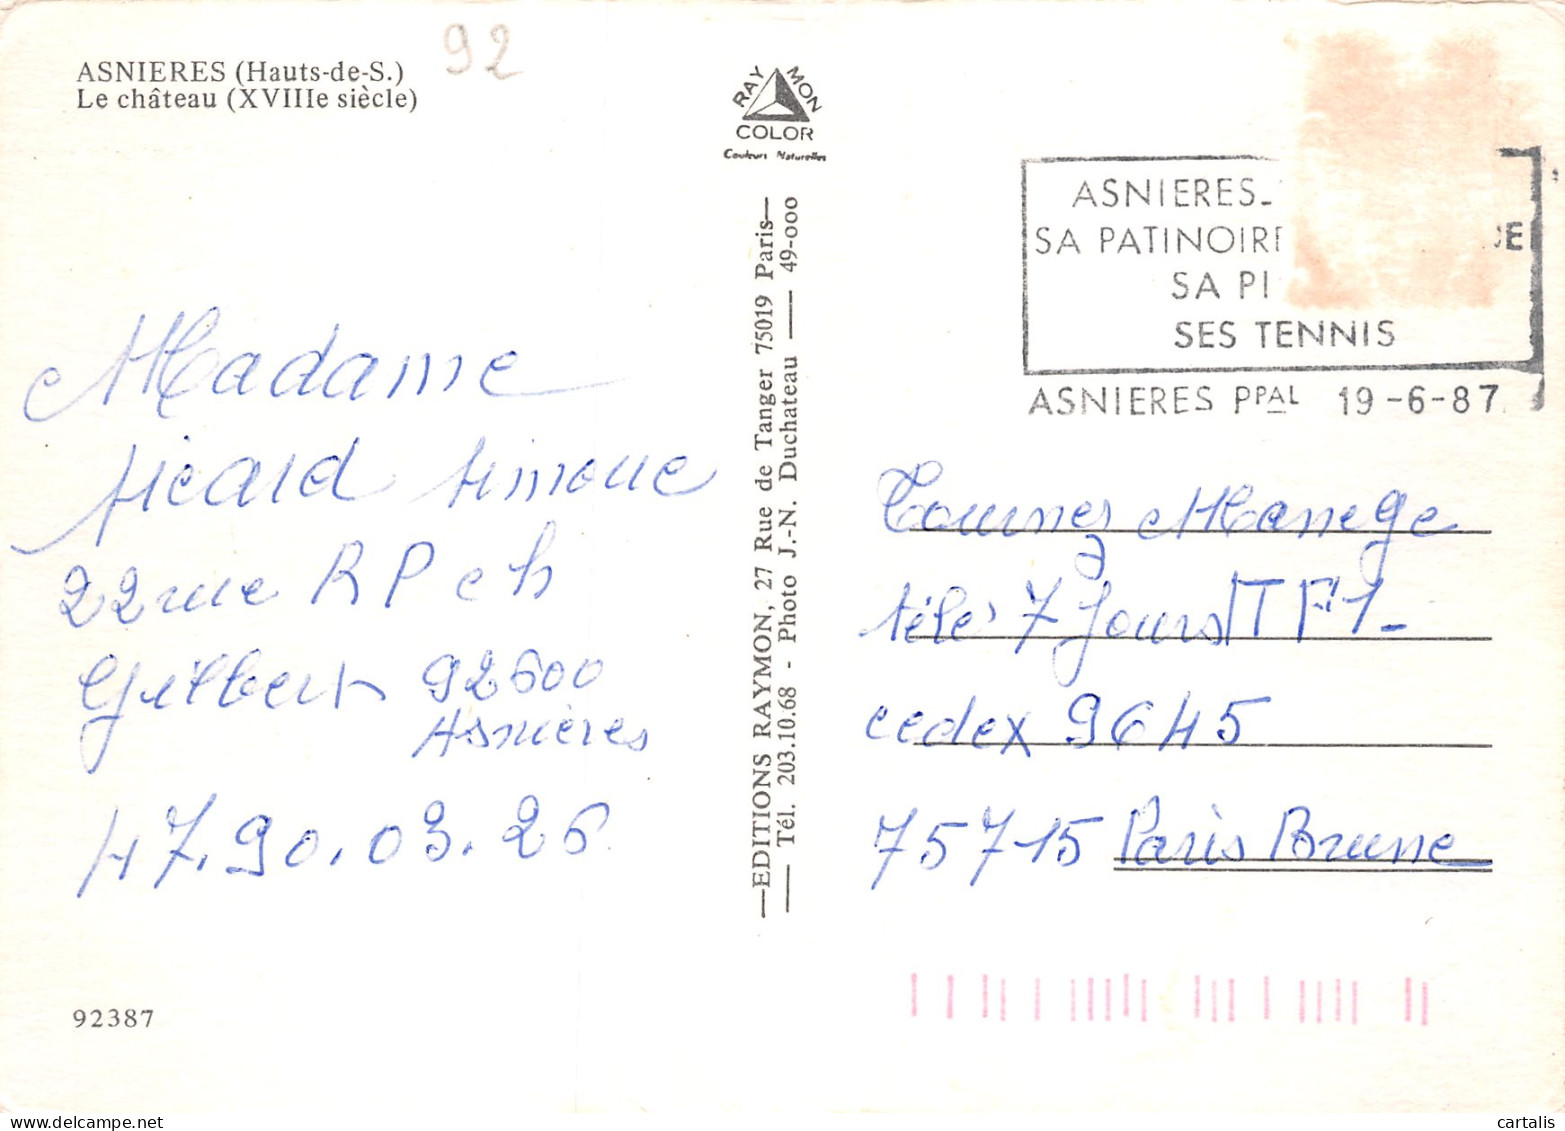 ASNIERES (Hauts-de-S.)
Le château (XVIIIe siècle)
92
RAYMON
COLOR
Couleurs Naturelles
ASNIERES-
SA PATINOIRE
SA PI
SES TENNIS
ASNIERES PPAL 19-6-87
Madame
picard simone
22 rue R P ch
Gilbert 92600
Asnières
47.90.03.26
92387
—EDITIONS RAYMON, 27 Rue de Tanger 75019 Paris—
— Tél. 203.10.68 - Photo J.-N. Duchateau — 49-000
Tournez Manege
télé 7 Jours TF1-
cedex 9645
75715 Paris Brune
cartalis
www.delcampe.net